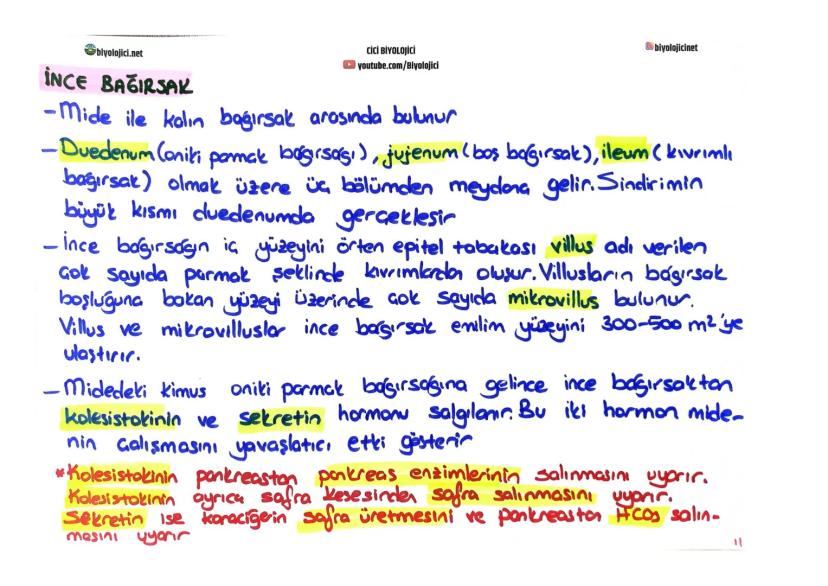 biyolojici.net
CİCİ BİYOLOJİCİ
youtube.com/Biyolojici
biyolojicinet
İNCE BAĞIRSAK
- Mide ile kalın bağırsak arasında bulunur
- Duedenum (oniki parmak bağırsağı), jujenum (boş bağırsak), ileum (kıvrımlı
bağırsak) olmak üzere üç bölümden meydana gelir. Sindirimin
büyük kısmı duedenumda gerçekleşir
- İnce bağırsağın iç yüzeyini örten epitel tabakası villus adı verilen
çok sayıda parmak şeklinde kıvrımlardan oluşur. Villusların bağırsak
boşluğuna bakan yüzeyi üzerinde çok sayıda mikrovillus bulunur.
Villus ve mikrovilluslar ince bağırsak emilim yüzeyini 300-500 m²'ye
ulaştırır.
- Midedeki kimus oniki parmak bağırsağına gelince ince bağırsaktan
kolesistokinin ve sekretin hormonu salgılanır. Bu iki hormon mide-
nin çalışmasını yavaşlatıcı etki gösterir
* Kolesistokinin pankreastan pankreas enzimlerinin salınmasını uyarır.
Kolesistokinin ayrıca safra kesesinden safra salınmasını uyarır.
Sekretin ise karaciğerin safra üretmesini ve pankreastan HCO3 salın-
masını uyarır
11